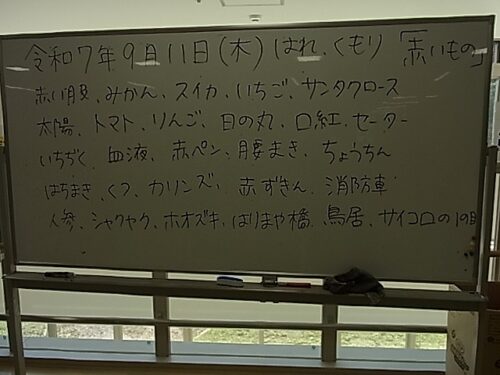 令和7年9月11日(木) はれ、くもり 「赤いもの」
赤い服、みかん、スイカ、いちご、サンタクロース
太陽、トマト、りんご、日の丸、口紅、セーター
いちぢく、血液、赤ペン、腰まき、ちょうちん
はちまき、くつ、カリンズ、赤ずきん、消防車
人参、シャクヤク、ホオズキ、はりまや橋、鳥居、サイコロの1の目